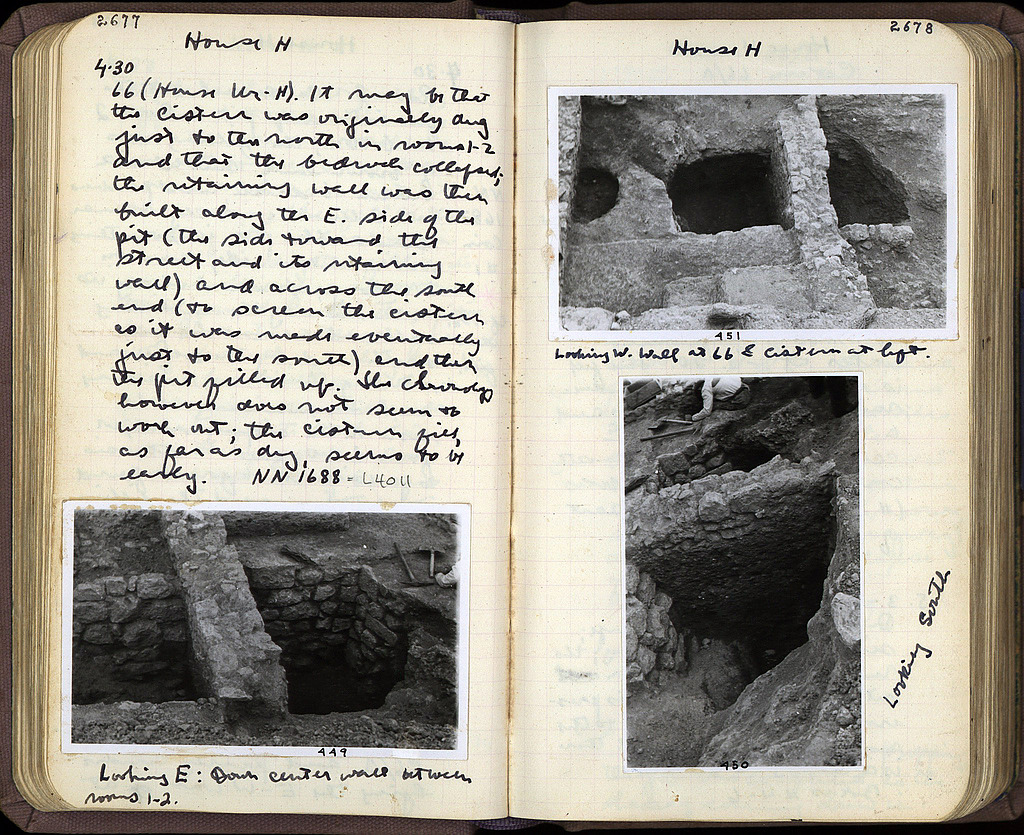 2677
House H
4·30
66 (House Ur-H). It may be that
the cistern was originally dug
just to the north in rooms 1-2
and that the bedrock collapsed;
the retaining wall was then
built along the E. side of the
pit (the side toward the
street and its retaining
wall) and across the south
end (to screen the cistern
as it was made eventually
just to the south) and then
the pit filled up. The chronology
however does not seem to
work out; the cistern fill,
as far as dug, seems to be
early. NN 1688 = L4011
449
Looking E: Down center wall between
rooms 1-2.
2678
House H
451
Looking W. Wall at 66 & cistern at left.
450
Looking South